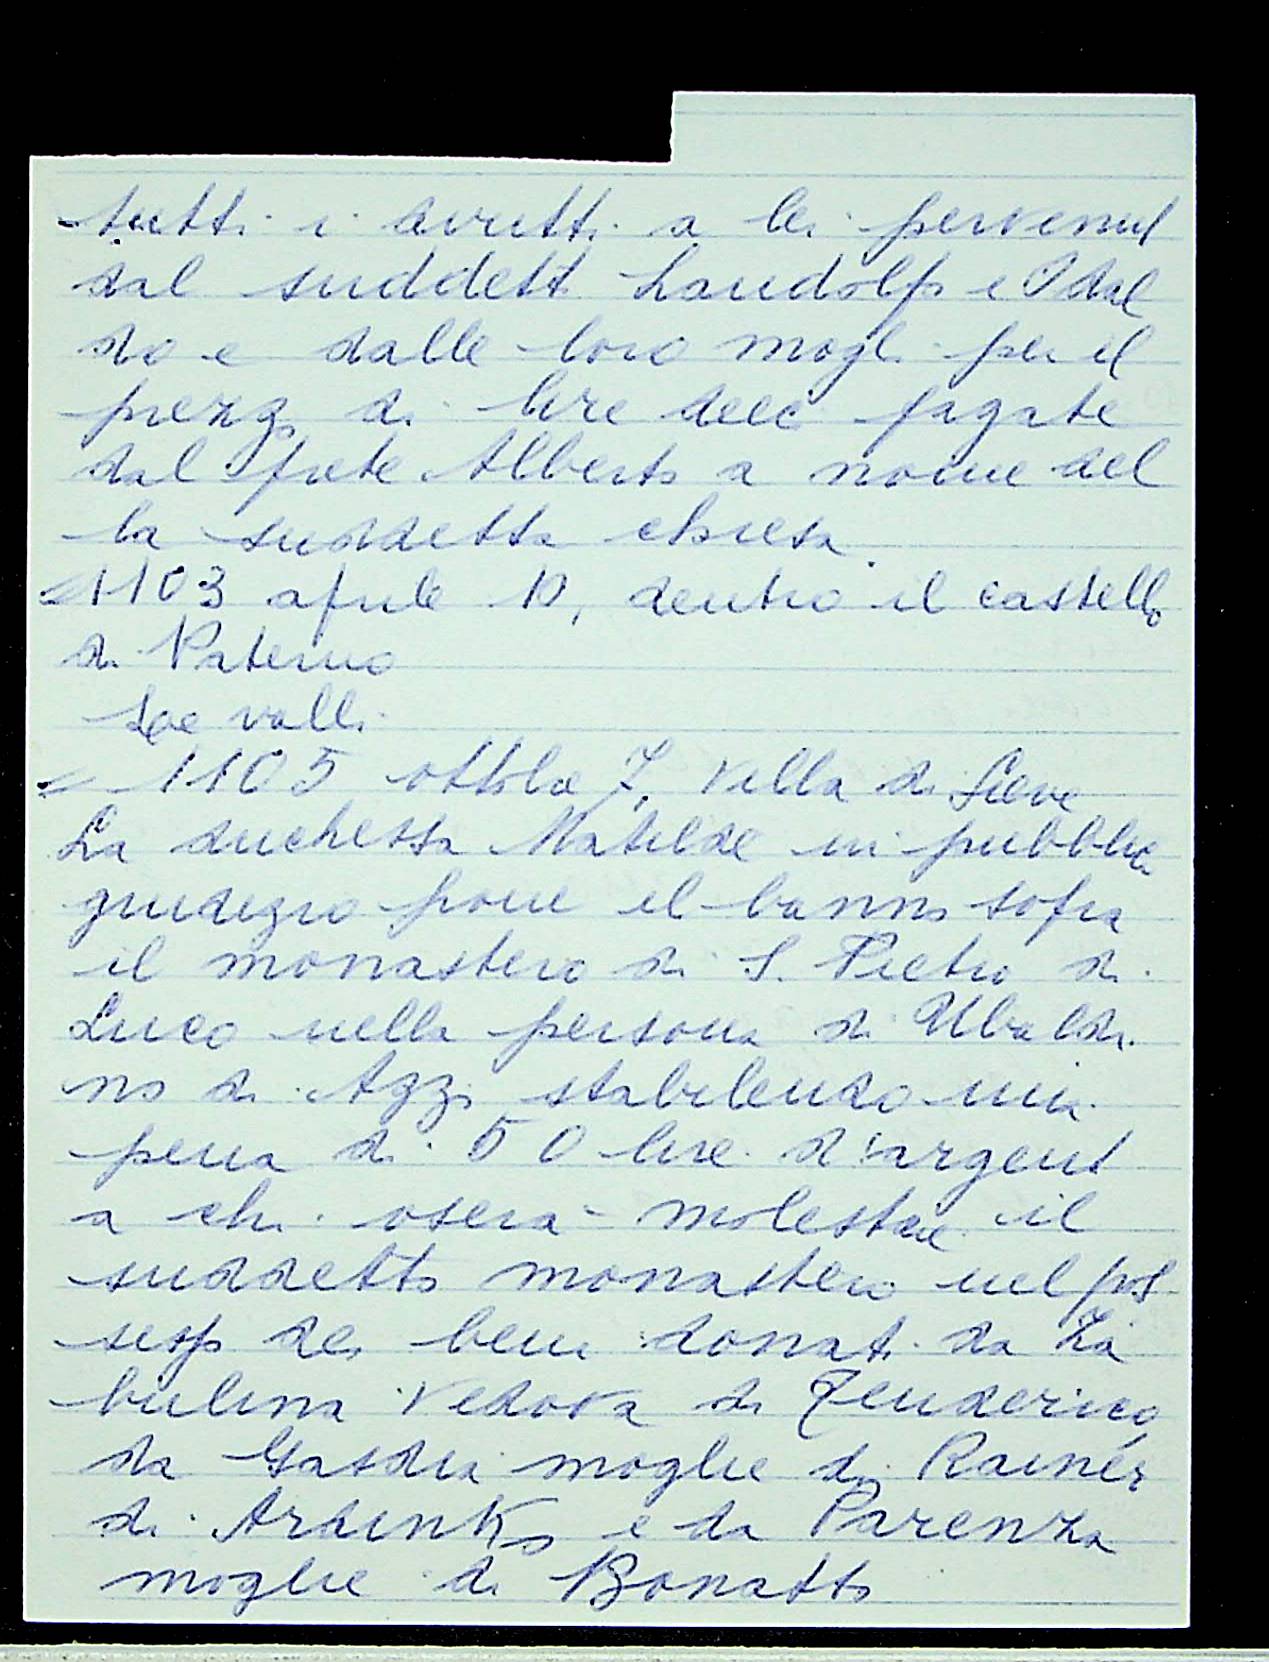 tutti i diritti a lei pervenuti
dal suddetti Landolfo e Odal
do e dalle loro mogli per il
prezzo di lire dieci pagate
dal prete Alberto a nome del
la suddetta chiesa
=1103 aprile 10, dentro il castello
di Paterno
valli
= 1105 ottobre 7, Villa di Pieve
La duchessa Matilde in pubblico
giudizio pone il banno sopra
il monastero di S. Pietro di
Luco nella persona di Ubaldi
no di Azzo stabilendo una
pena di 50 lire d'argento
a chi oserà molestare il
suddetto monastero nel pos
sesso dei beni donati da Za
bulina vedova di Teuderico
da Gasdia moglie di Rainer
di Ardinko e da Parenza
moglie di Bonatto